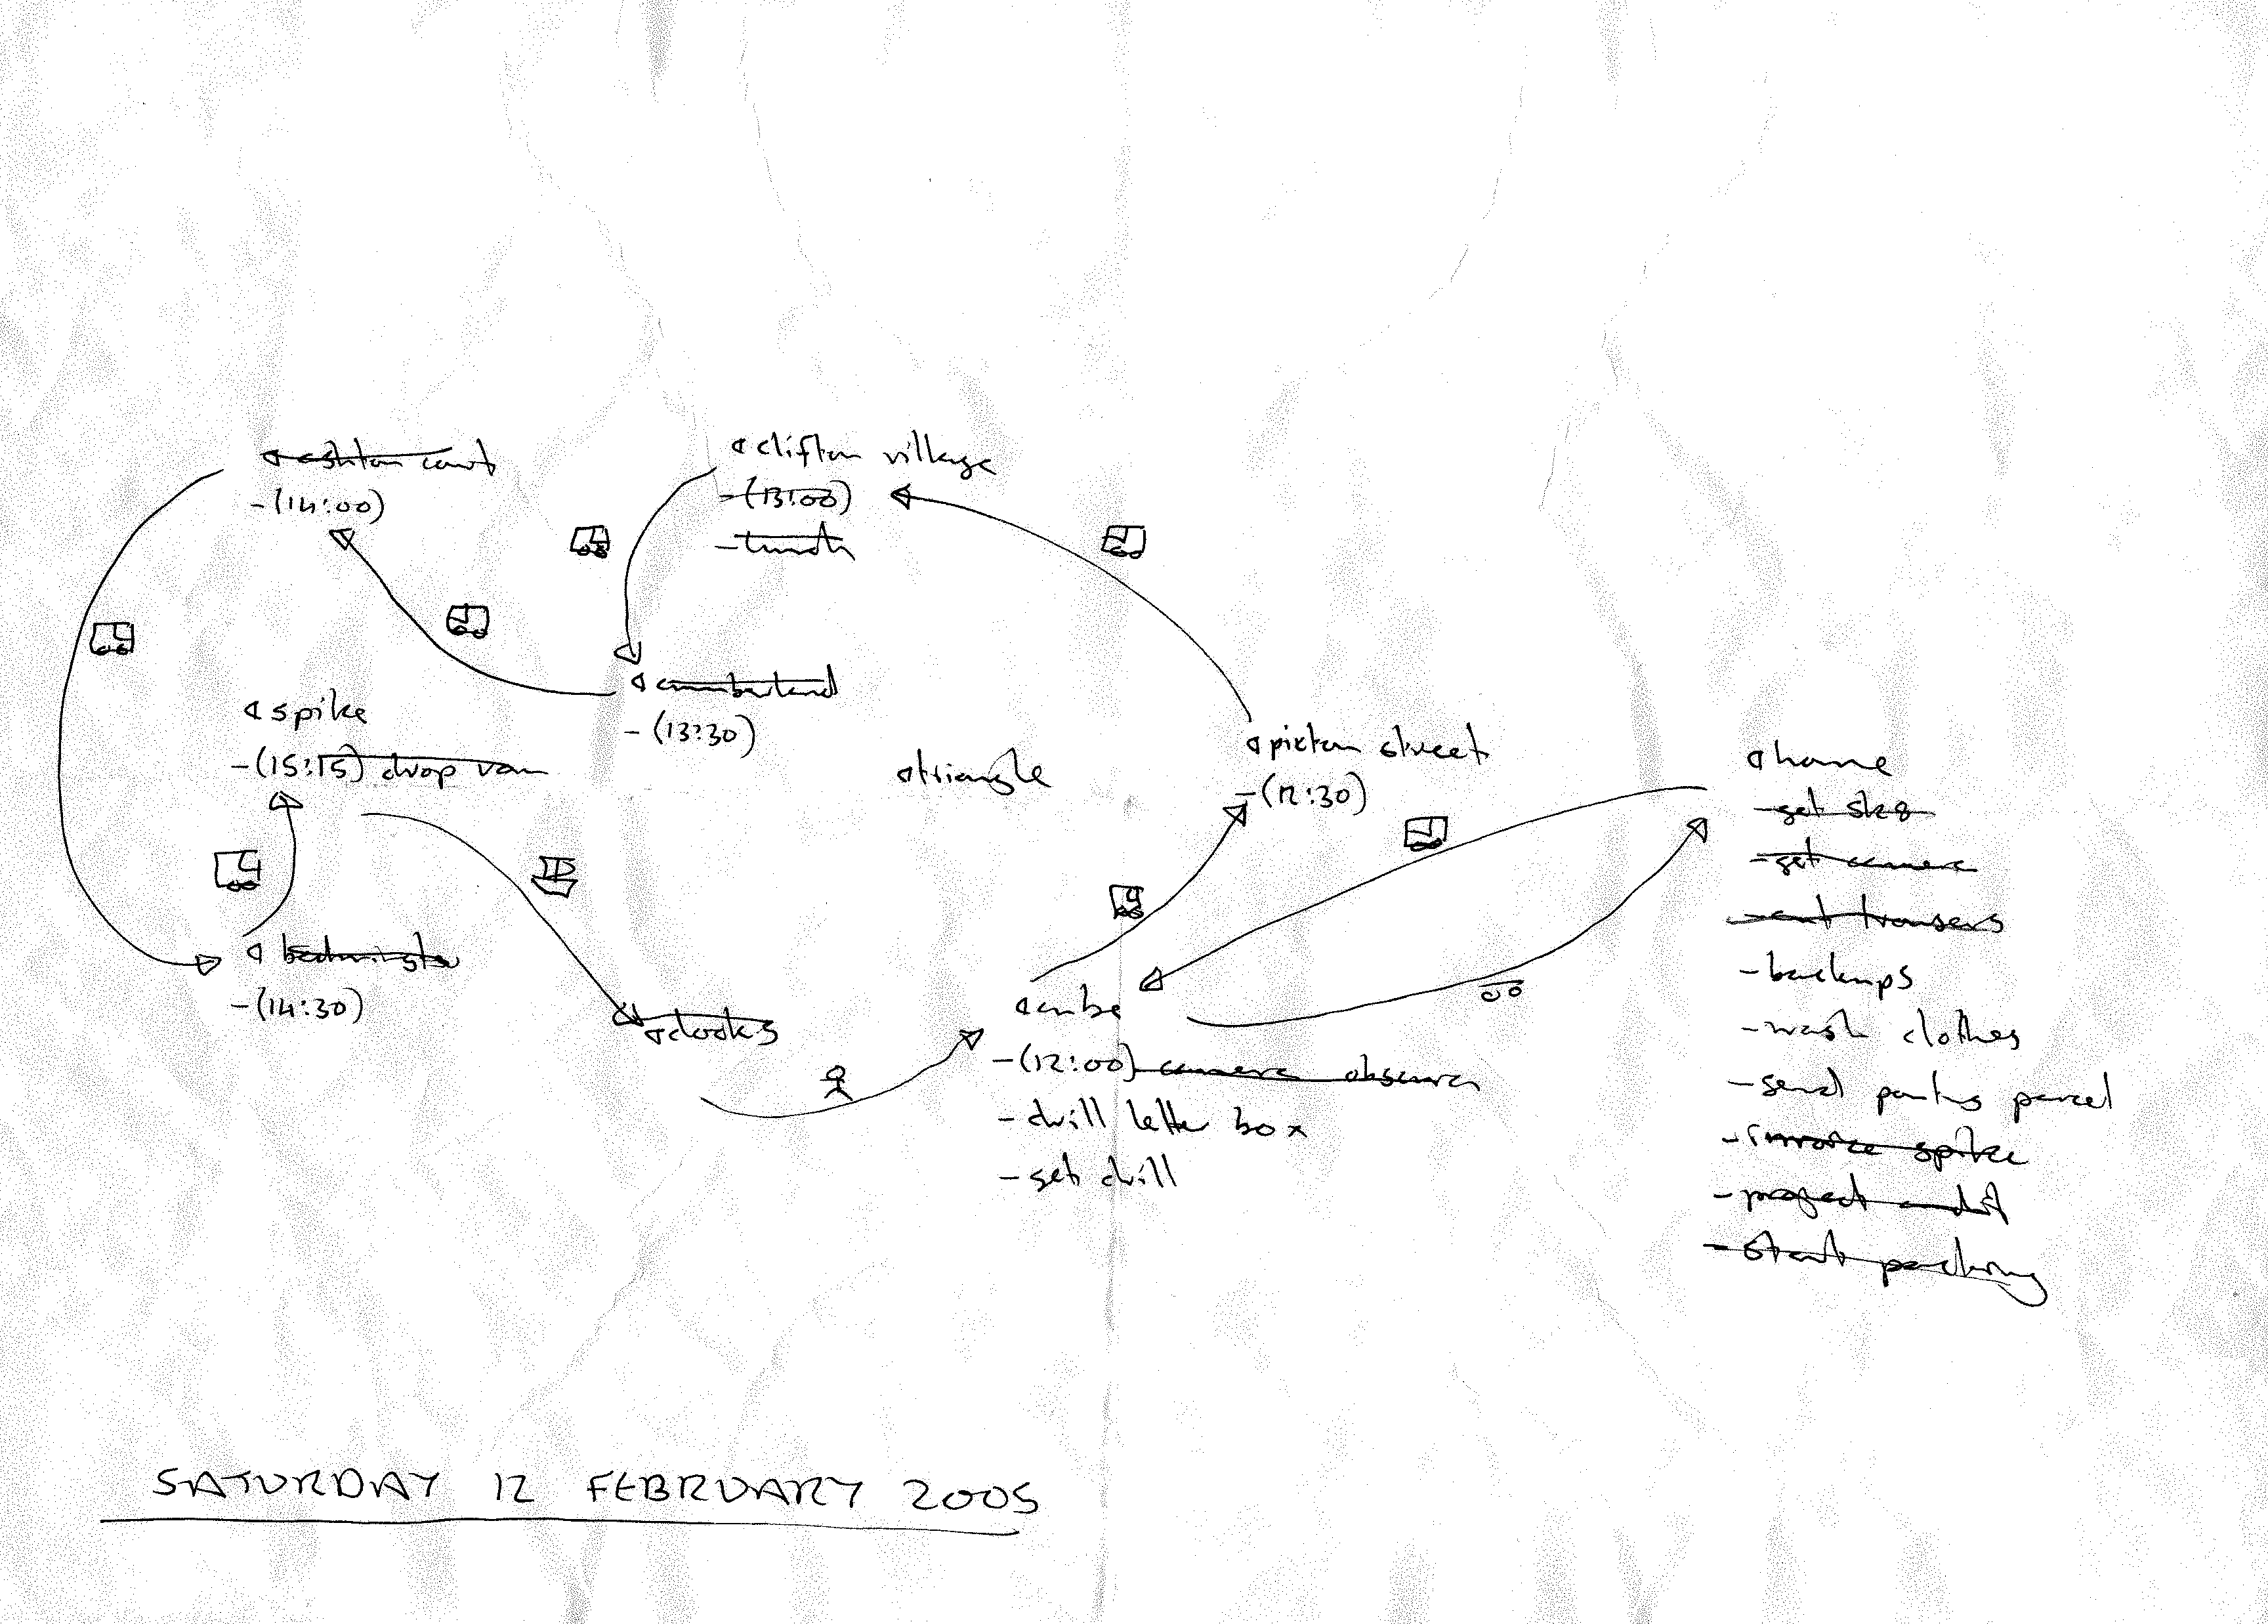 ashton court
-(14:00)
clifton village
-(13:00)
-lunch
spike
-(15:15) drop van
cumberland
-(13:30)
triangle
picton street
-(12:30)
home
-get sk8
-get camera
-cut trousers
-backups
-wash clothes
-send parcel
-invoice spike
-project audit
-start packing
bedminster
-(14:30)
docks
cube
-(12:00) camera obscura
-drill letter box
-get drill
SATURDAY 12 FEBRUARY 2005